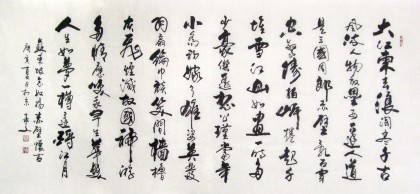 大江東去浪淘盡千古
風流人物故壘西邊人道
是三國周郎赤壁亂石穿
空驚濤拍岸捲起千
堆雪江山如畫一時多
少豪傑遙想公瑾當年
小喬初嫁了雄姿英發
羽扇綸巾談笑間檣櫓
灰飛煙滅故國神游
多情應笑我早生華髮
人生如夢一樽還酹江月
蘇東坡念奴嬌赤壁懷古
庚寅夏